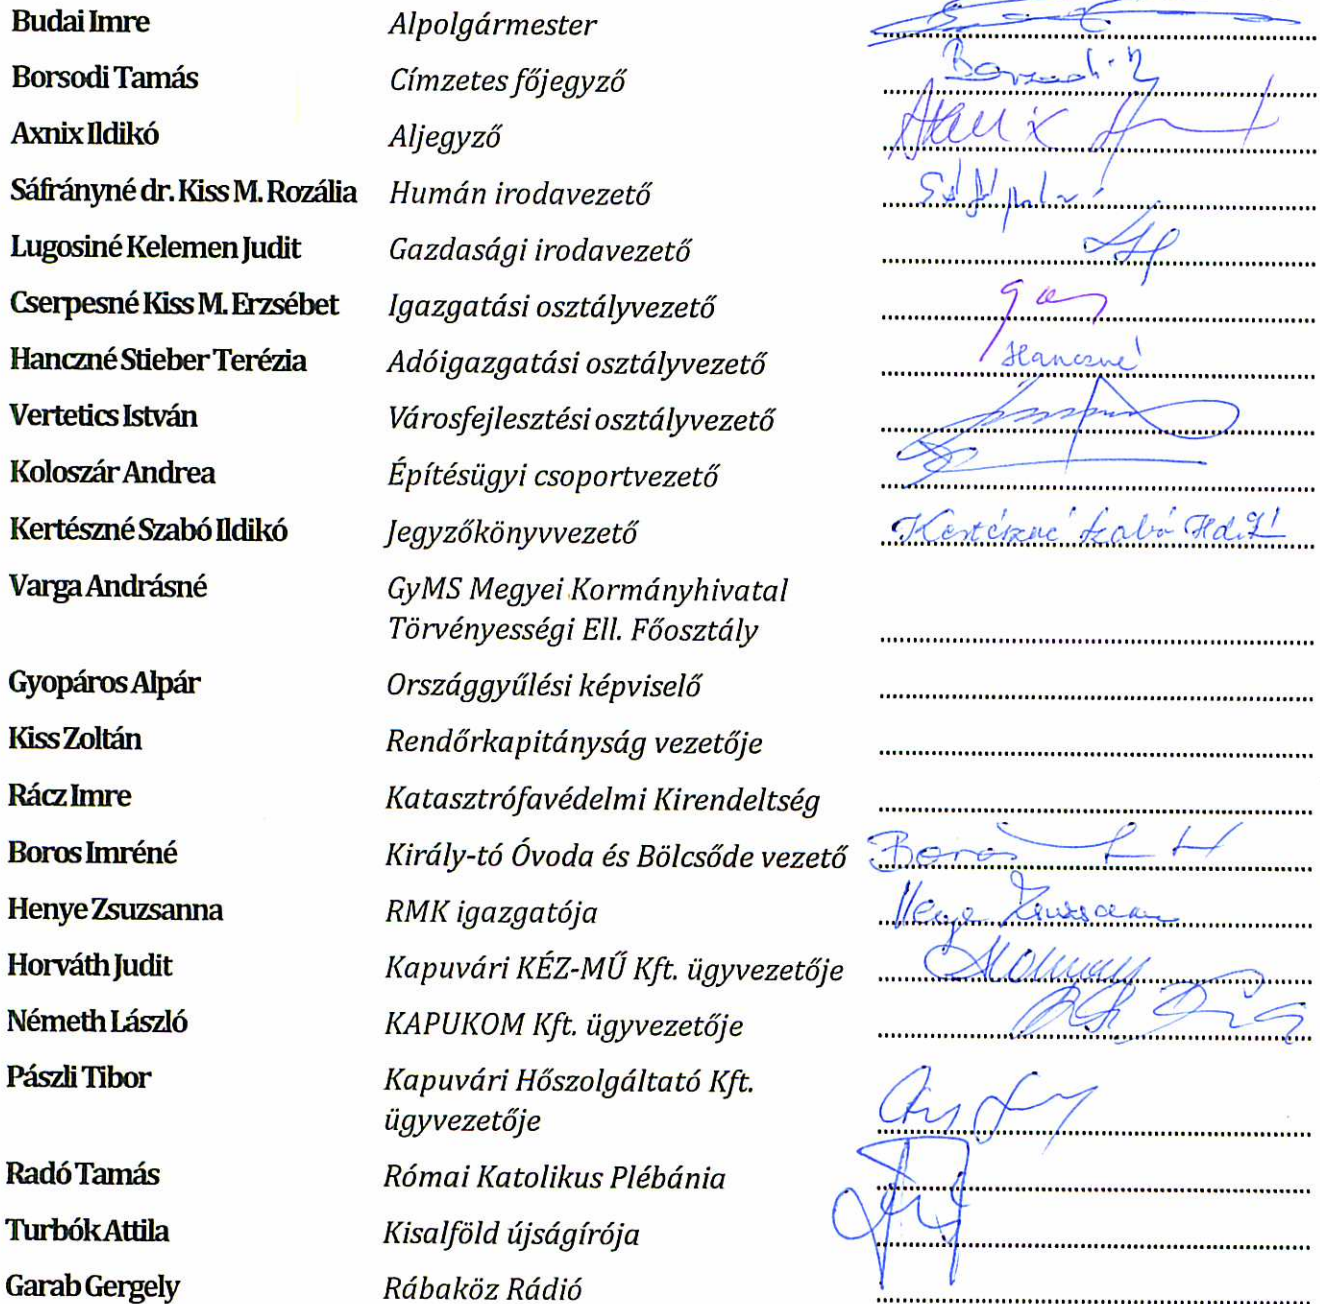 Budai Imre Alpolgármester
Borsodi Tamás Címzetes főjegyző Borsodi
Axnix Ildikó Aljegyző Axnix
Sáfrányné dr. Kiss M. Rozália Humán irodavezető
Lugosiné Kelemen Judit Gazdasági irodavezető
Cserpesné Kiss M. Erzsébet Igazgatási osztályvezető
Hanczné Stieber Terézia Adóigazgatási osztályvezető Hanczné
Vertetics István Városfejlesztési osztályvezető
Koloszár Andrea Építésügyi csoportvezető
Kertészné Szabó Ildikó Jegyzőkönyvvezető Kertészné Szabó Ildikó
Varga Andrásné GyMS Megyei Kormányhivatal
Törvényességi Ell. Főosztály
Gyopáros Alpár Országgyűlési képviselő
Kiss Zoltán Rendőrkapitányság vezetője
Rácz Imre Katasztrófavédelmi Kirendeltség
Boros Imréné Király-tó Óvoda és Bölcsőde vezető Boros
Henye Zsuzsanna RMK igazgatója Henye Zsuzsanna
Horváth Judit Kapuvári KÉZ-MŰ Kft. ügyvezetője
Németh László KAPUKOM Kft. ügyvezetője
Pászli Tibor Kapuvári Hőszolgáltató Kft.
ügyvezetője
Radó Tamás Római Katolikus Plébánia
Turbók Attila Kisalföld újságírója
Garab Gergely Rábaköz Rádió